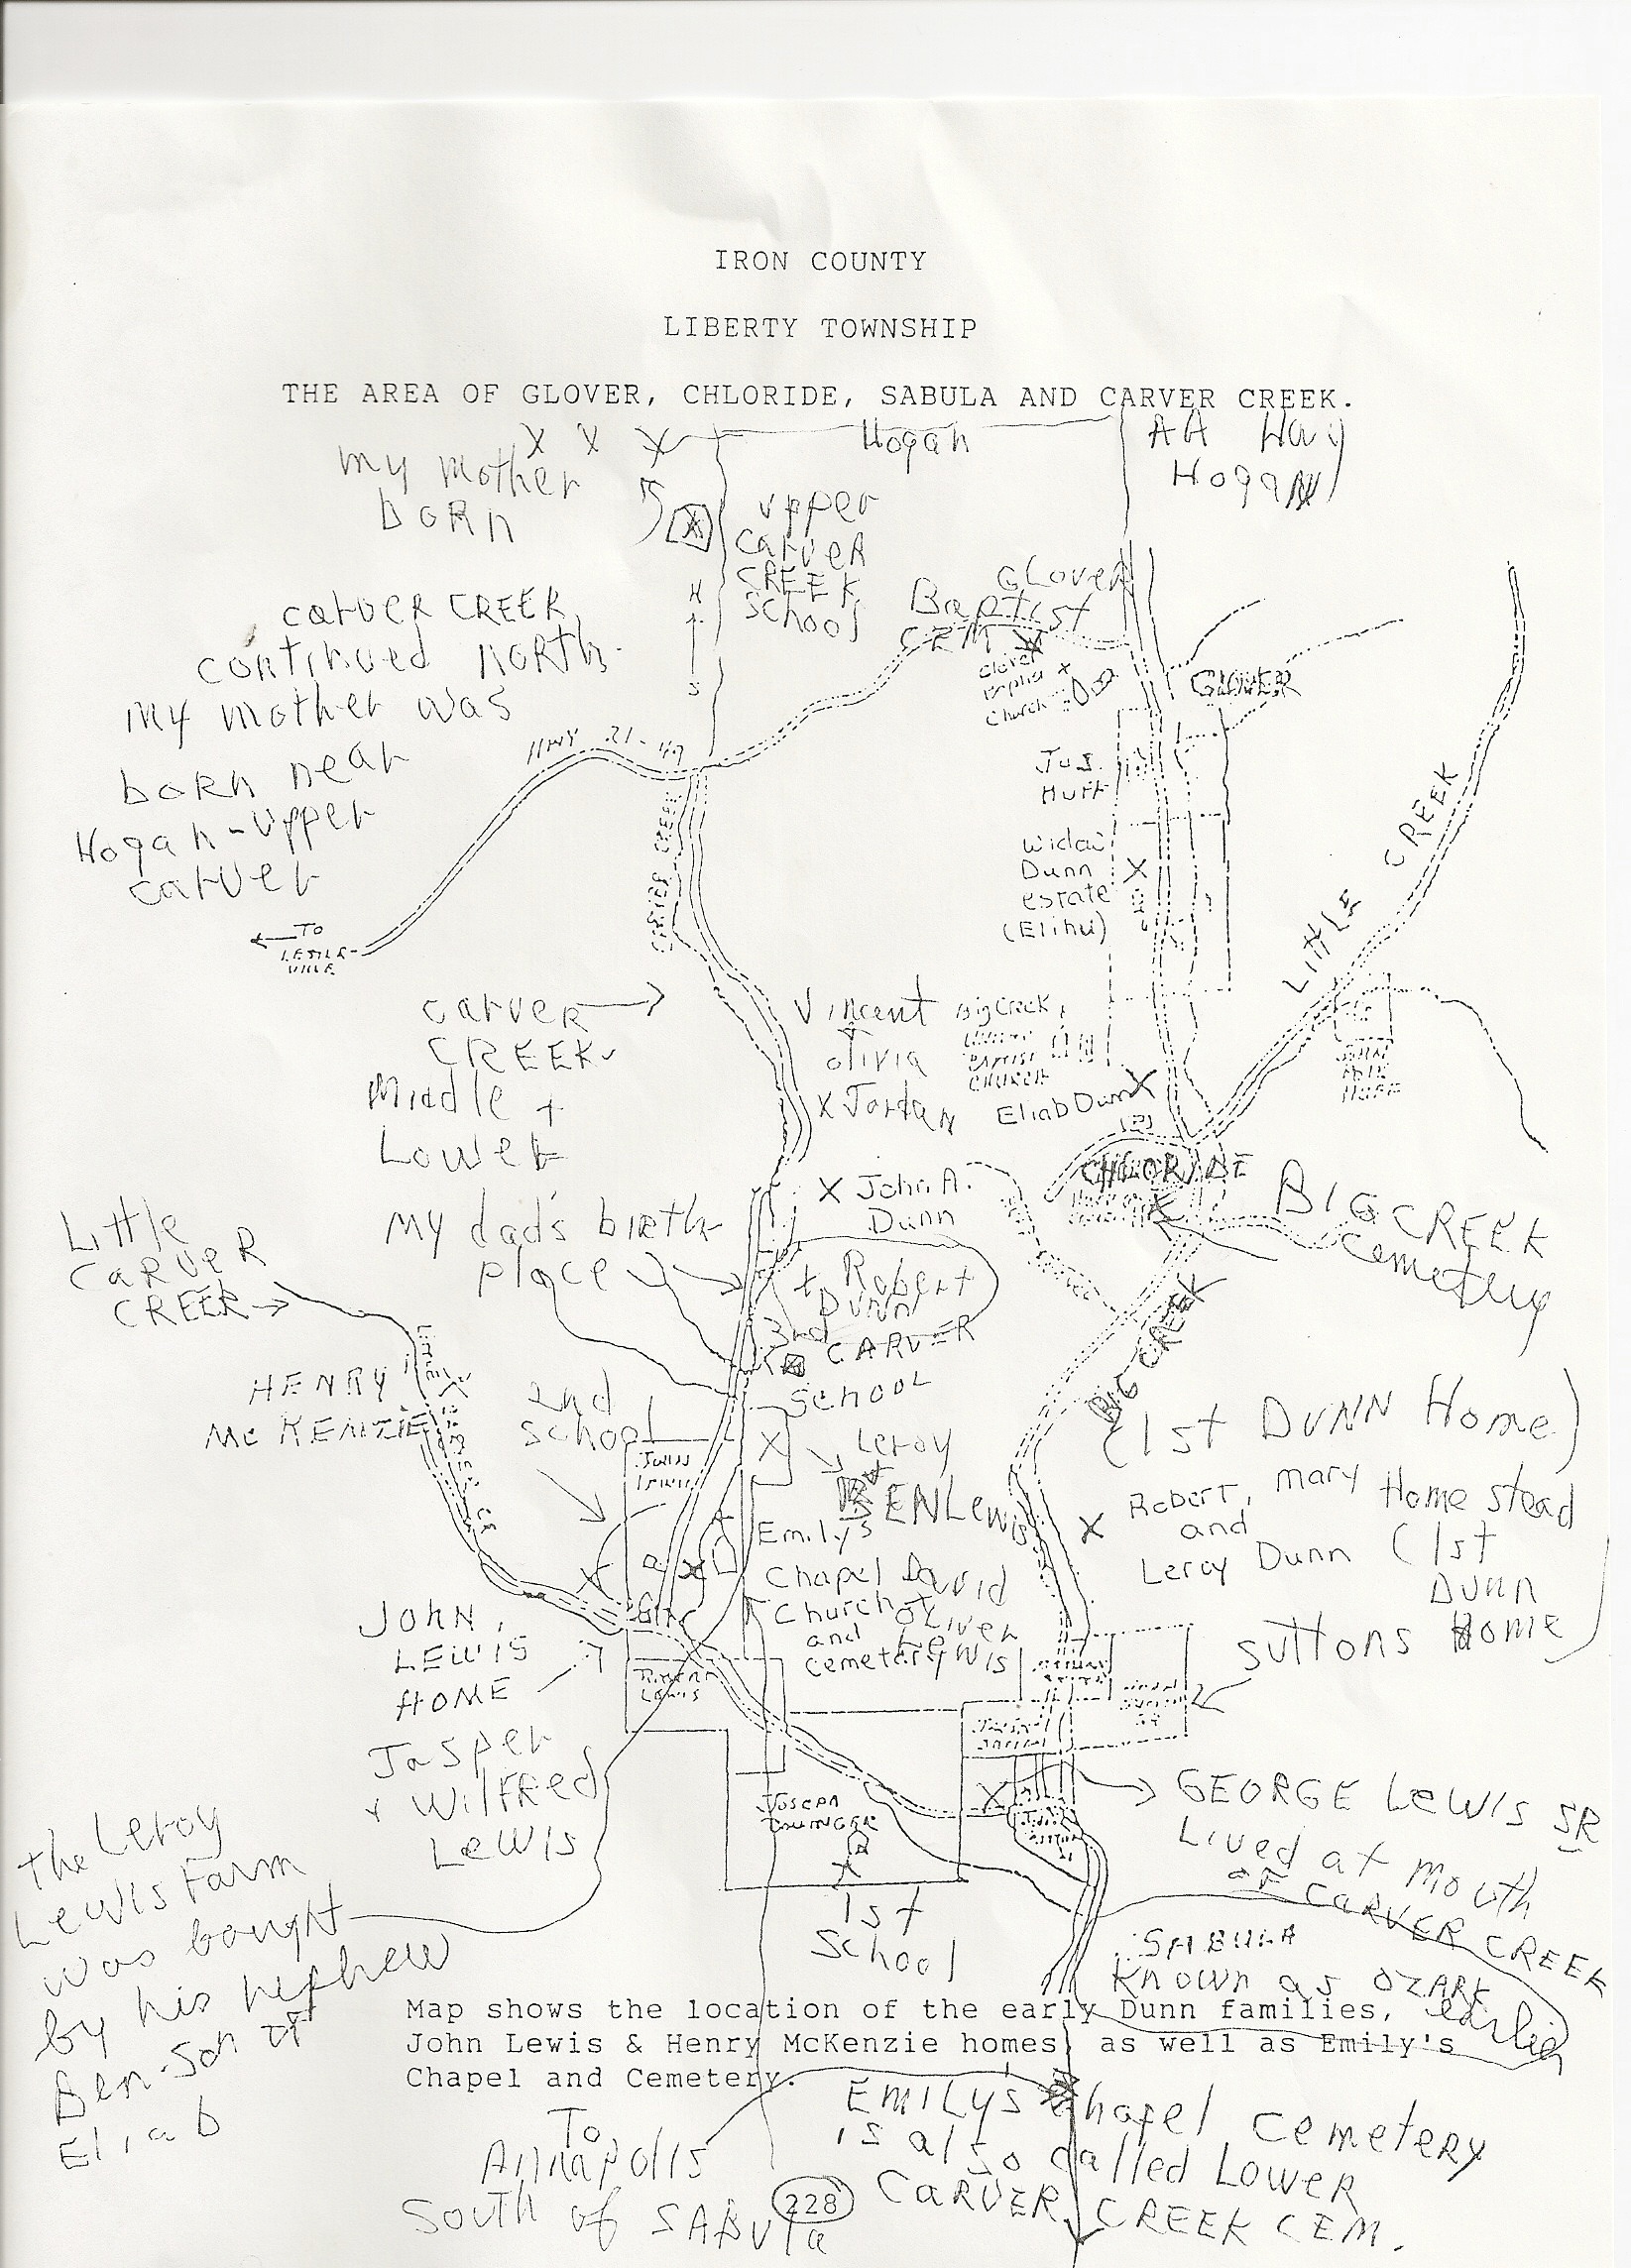 IRON COUNTY
LIBERTY TOWNSHIP
THE AREA OF GLOVER, CHLORIDE, SABULA AND CARVER CREEK.
X X X
Hogan
AA Hwy
Hogan
my mother
born
upper
carver
CREEK
School
N
S
carver CREEK
continued north
my mother was
born near
Hogan-upper
carver
Glover
Baptist
CEM
Glover
Church
GLOVER
HWY 21-49
Jos.
Huff
Widow
Dunn
estate
(Elihu)
X
LITTLE CREEK
CARVER CREEK
TO
LESTER-
VILLE
carver
CREEK
Middle +
Lower
Vincent
olivia
X Jordan
Big Creek
BAPTIST
CHURCH
Eliab Dunn X
X John A.
Dunn
CHLORIDE
BIG CREEK
cemetery
Little
CARVER
CREEK
my dad's birth
place
Robert
DUNN
3rd
CARVER
SCHOOL
BIG CREEK
LITTLE CARVER CR
HENRY
McKENZIE
2nd
school
JOHN
LEWIS
X
Leroy
BEN Lewis
(1st DUNN Home)
X Robert, mary Home stead
and
Leroy Dunn (1st
DUNN
Home)
Emily's
Chapel
Church
and
cemetery
David
Oliver
Lewis
JOHN
LEWIS
HOME
Jasper
+ Wilfred
Lewis
LEWIS
suttons
JOSEPH
X
1st
School
GEORGE LEWIS SR
Lived at mouth
of CARVER CREEK
SABULA
Known as OZARK
earlier
The Leroy
Lewis Farm
was bought
by his nephew
Ben-son of
Eliab
Map shows the location of the early Dunn families,
John Lewis & Henry McKenzie homes, as well as Emily's
Chapel and Cemetery.
To
Annapolis
South of SABULA
EMILYS chapel cemetery
is also called Lower
CARVER CREEK CEM.
228